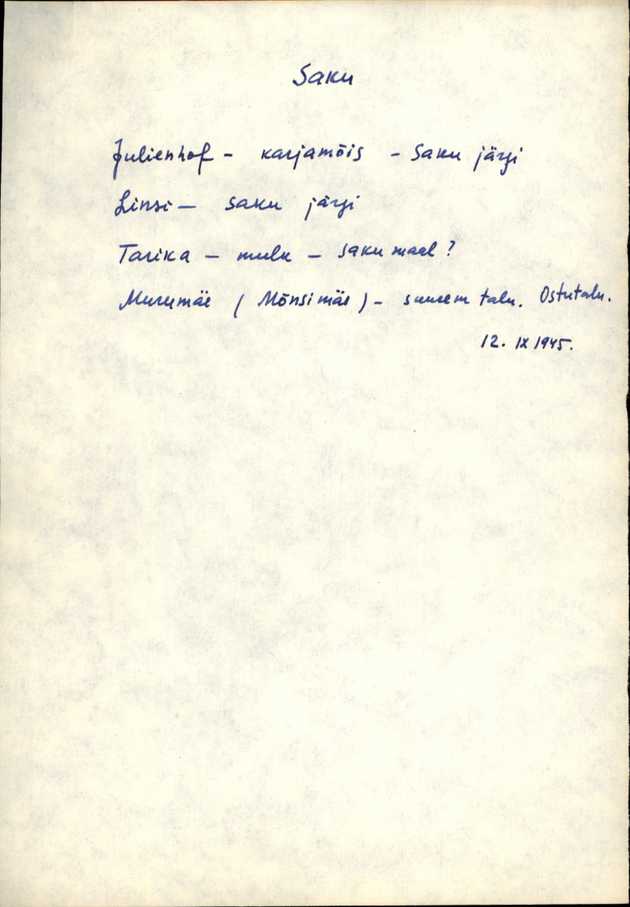 Saku
Julienhof - karjamõis - Saku järgi
Linsi - Saku järgi
Tarika - mulk - Saku maal?
Murumäe (Mõnsimäe) - suurem talu. Ostutalu.
12. IX 1945.